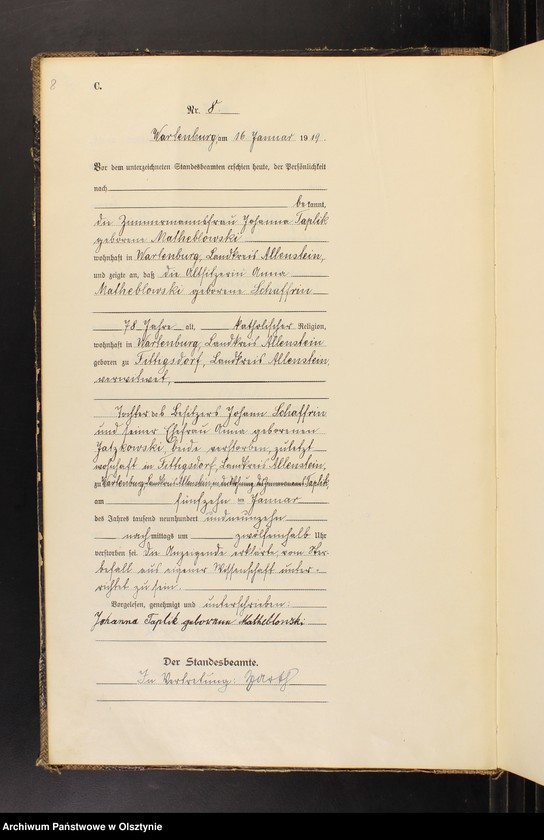 8
C.
Nr. 8
Wartenburg, am 16. Januar 1919.
Vor dem unterzeichneten Standesbeamten erschien heute, der Persönlichkeit
nach
bekannt,
die Zimmermannsfrau Johanna Taplik
geborene Matheblowski
wohnhaft in Wartenburg, Landkreis Allenstein,
und zeigte an, daß die Altsitzerin Anna
Matheblowski geborene Schaffrin
78 Jahre alt, katholischer Religion,
wohnhaft in Wartenburg, Landkreis Allenstein
geboren zu Fittigsdorf, Landkreis Allenstein,
verwitwet,
Tochter des Besitzers Johann Schaffrin
und seiner Ehefrau Anna geborenen
Jatzkowski, beide verstorben, zuletzt
wohnhaft in Fittigsdorf, Landkreis Allenstein,
zu Wartenburg, Landkreis Allenstein, in der Wohnung des Zimmermanns Taplik,
am fünfzehn ten Januar
des Jahres tausend neunhundert undneunzehn
nachmittags um zwölfeinhalb Uhr
verstorben sei. Die Anzeigende erklärte, vom Ster-
befall aus eigener Wissenschaft unter-
richtet zu sein.
Vorgelesen, genehmigt und unterschrieben:
Johanna Taplik geborene Matheblowski
Der Standesbeamte.
In Vertretung:
Archiwum Państwowe w Olsztynie